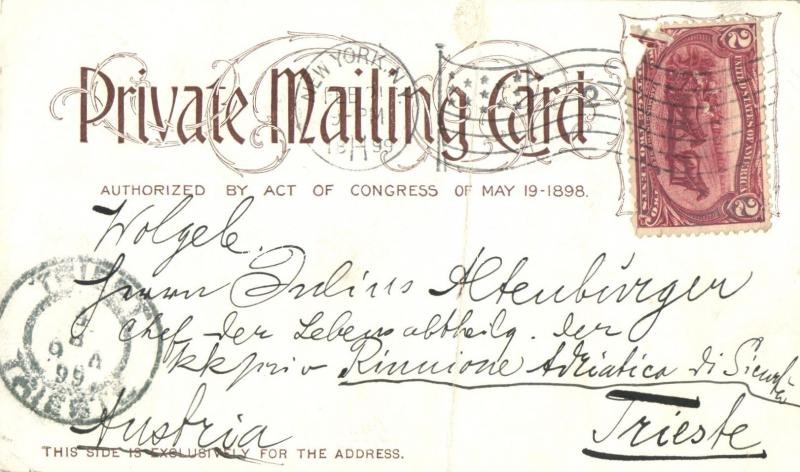 Private Mailing Card
NEW YORK, N
1899
2
UNITED STATES OF AMERICA
2
AUTHORIZED BY ACT OF CONGRESS OF MAY 19-1898.
Wolgeb.
Herrn Julius Altenburger
Chef der Lebensabtheilg. der
kk priv Riunione Adriatica di Sicurtà
Trieste
Austria
THIS SIDE IS EXCLUSIVELY FOR THE ADDRESS.
TRIEST
99